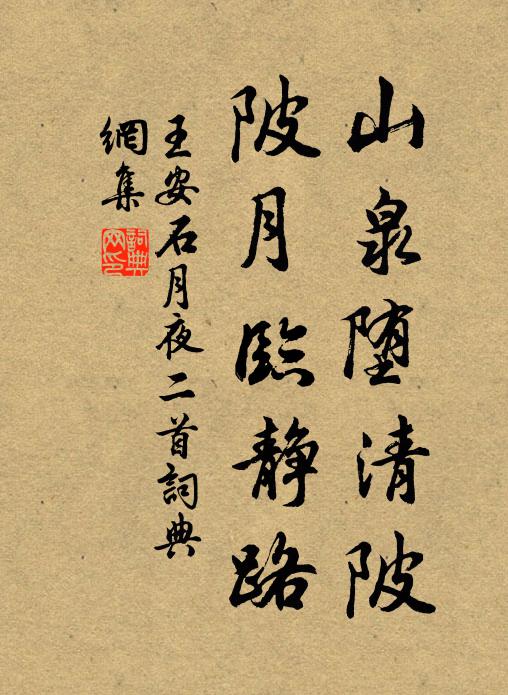 山泉堕清陂
陂月臨静路
王安石月夜二首詞典
網集
詞典網印